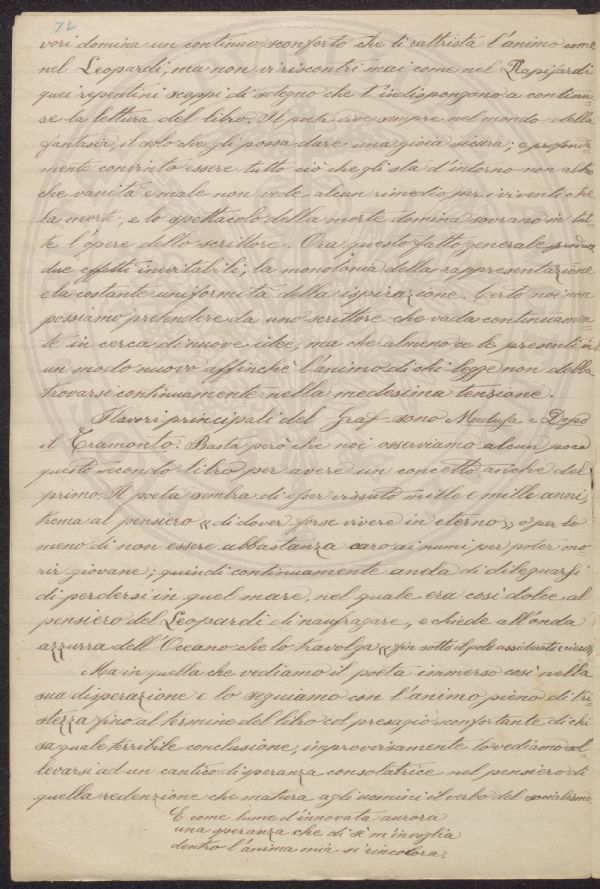 72
vori domina un continuo sconforto che ti rattrista l'animo come
nel Leopardi, ma non vi riscontri mai come nel Rapisardi
quei repentini scoppi di sdegno che t'indispongono a continua=
re la lettura del libro. Il poeta vive sempre nel mondo della
fantasia, il solo che gli possa dare una gioia sicura; e profonda
mente convinto essere tutto ciò che gli sta d'intorno non altro
che vanità e male non vede alcun rimedio per i viventi che
la morte, e lo spettacolo della morte domina sovrano in tut=
te l'opere dello scrittore. Ora questo fatto generale produce
due effetti inevitabili; la monotonia della rappresentazione
e la costante uniformità della ispirazione. Certo noi non
possiamo pretendere da uno scrittore che vada continuamen=
te in cerca di nuove idee, ma che almeno ce le presenti in
un modo nuovo affinchè l'animo di chi legge non debba
trovarsi continuamente nella medesima tensione.
I lavori principali del Graf sono Medusa e Dopo
il Tramonto. Basta però che noi osserviamo alcun poco
questo secondo libro per avere un concetto anche del
primo. Il poeta sembra di esser vissuto mille e mille anni,
trema al pensiero « di dover forse vivere in eterno » o per lo
meno di non essere abbastanza caro ai numi per poter mo
rir giovane; quindi continuamente anela di dileguarsi
di perdersi in quel mare, nel quale era così dolce al
pensiero del Leopardi di naufragare, e chiede all'onda
azzurra dell'Oceano che lo travolga « fin sotto il polo assiderato e cieco »
Ma in quella che vediamo il poeta immerso così nella
sua disperazione e lo seguiamo con l'animo pieno di tri=
stezza fino al termine del libro col presagio sconfortante di chi
sa quale terribile conclusione, improvvisamente lo vediamo sol
levarsi ad un cantico di speranza consolatrice nel pensiero di
quella redenzione che matura agli uomini il verbo del socialismo
E come lume d'innovata aurora
una speranza che di sè m'invoglia
dentro l'anima mia si rincolora.